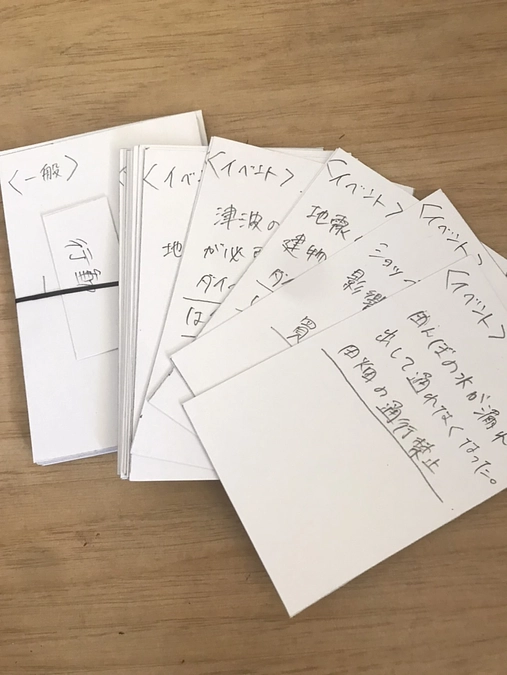 〈一般〉
行動
〈イベ
地
〈イベント〉
津波の
が必
ダイ
は
〈イベント〉
地震
建物
ダ
〈イベント〉
ショッ
影響
買
〈イベント〉
田んぼの水が溢れ
出して通れなくなった。
田畑の通行禁止